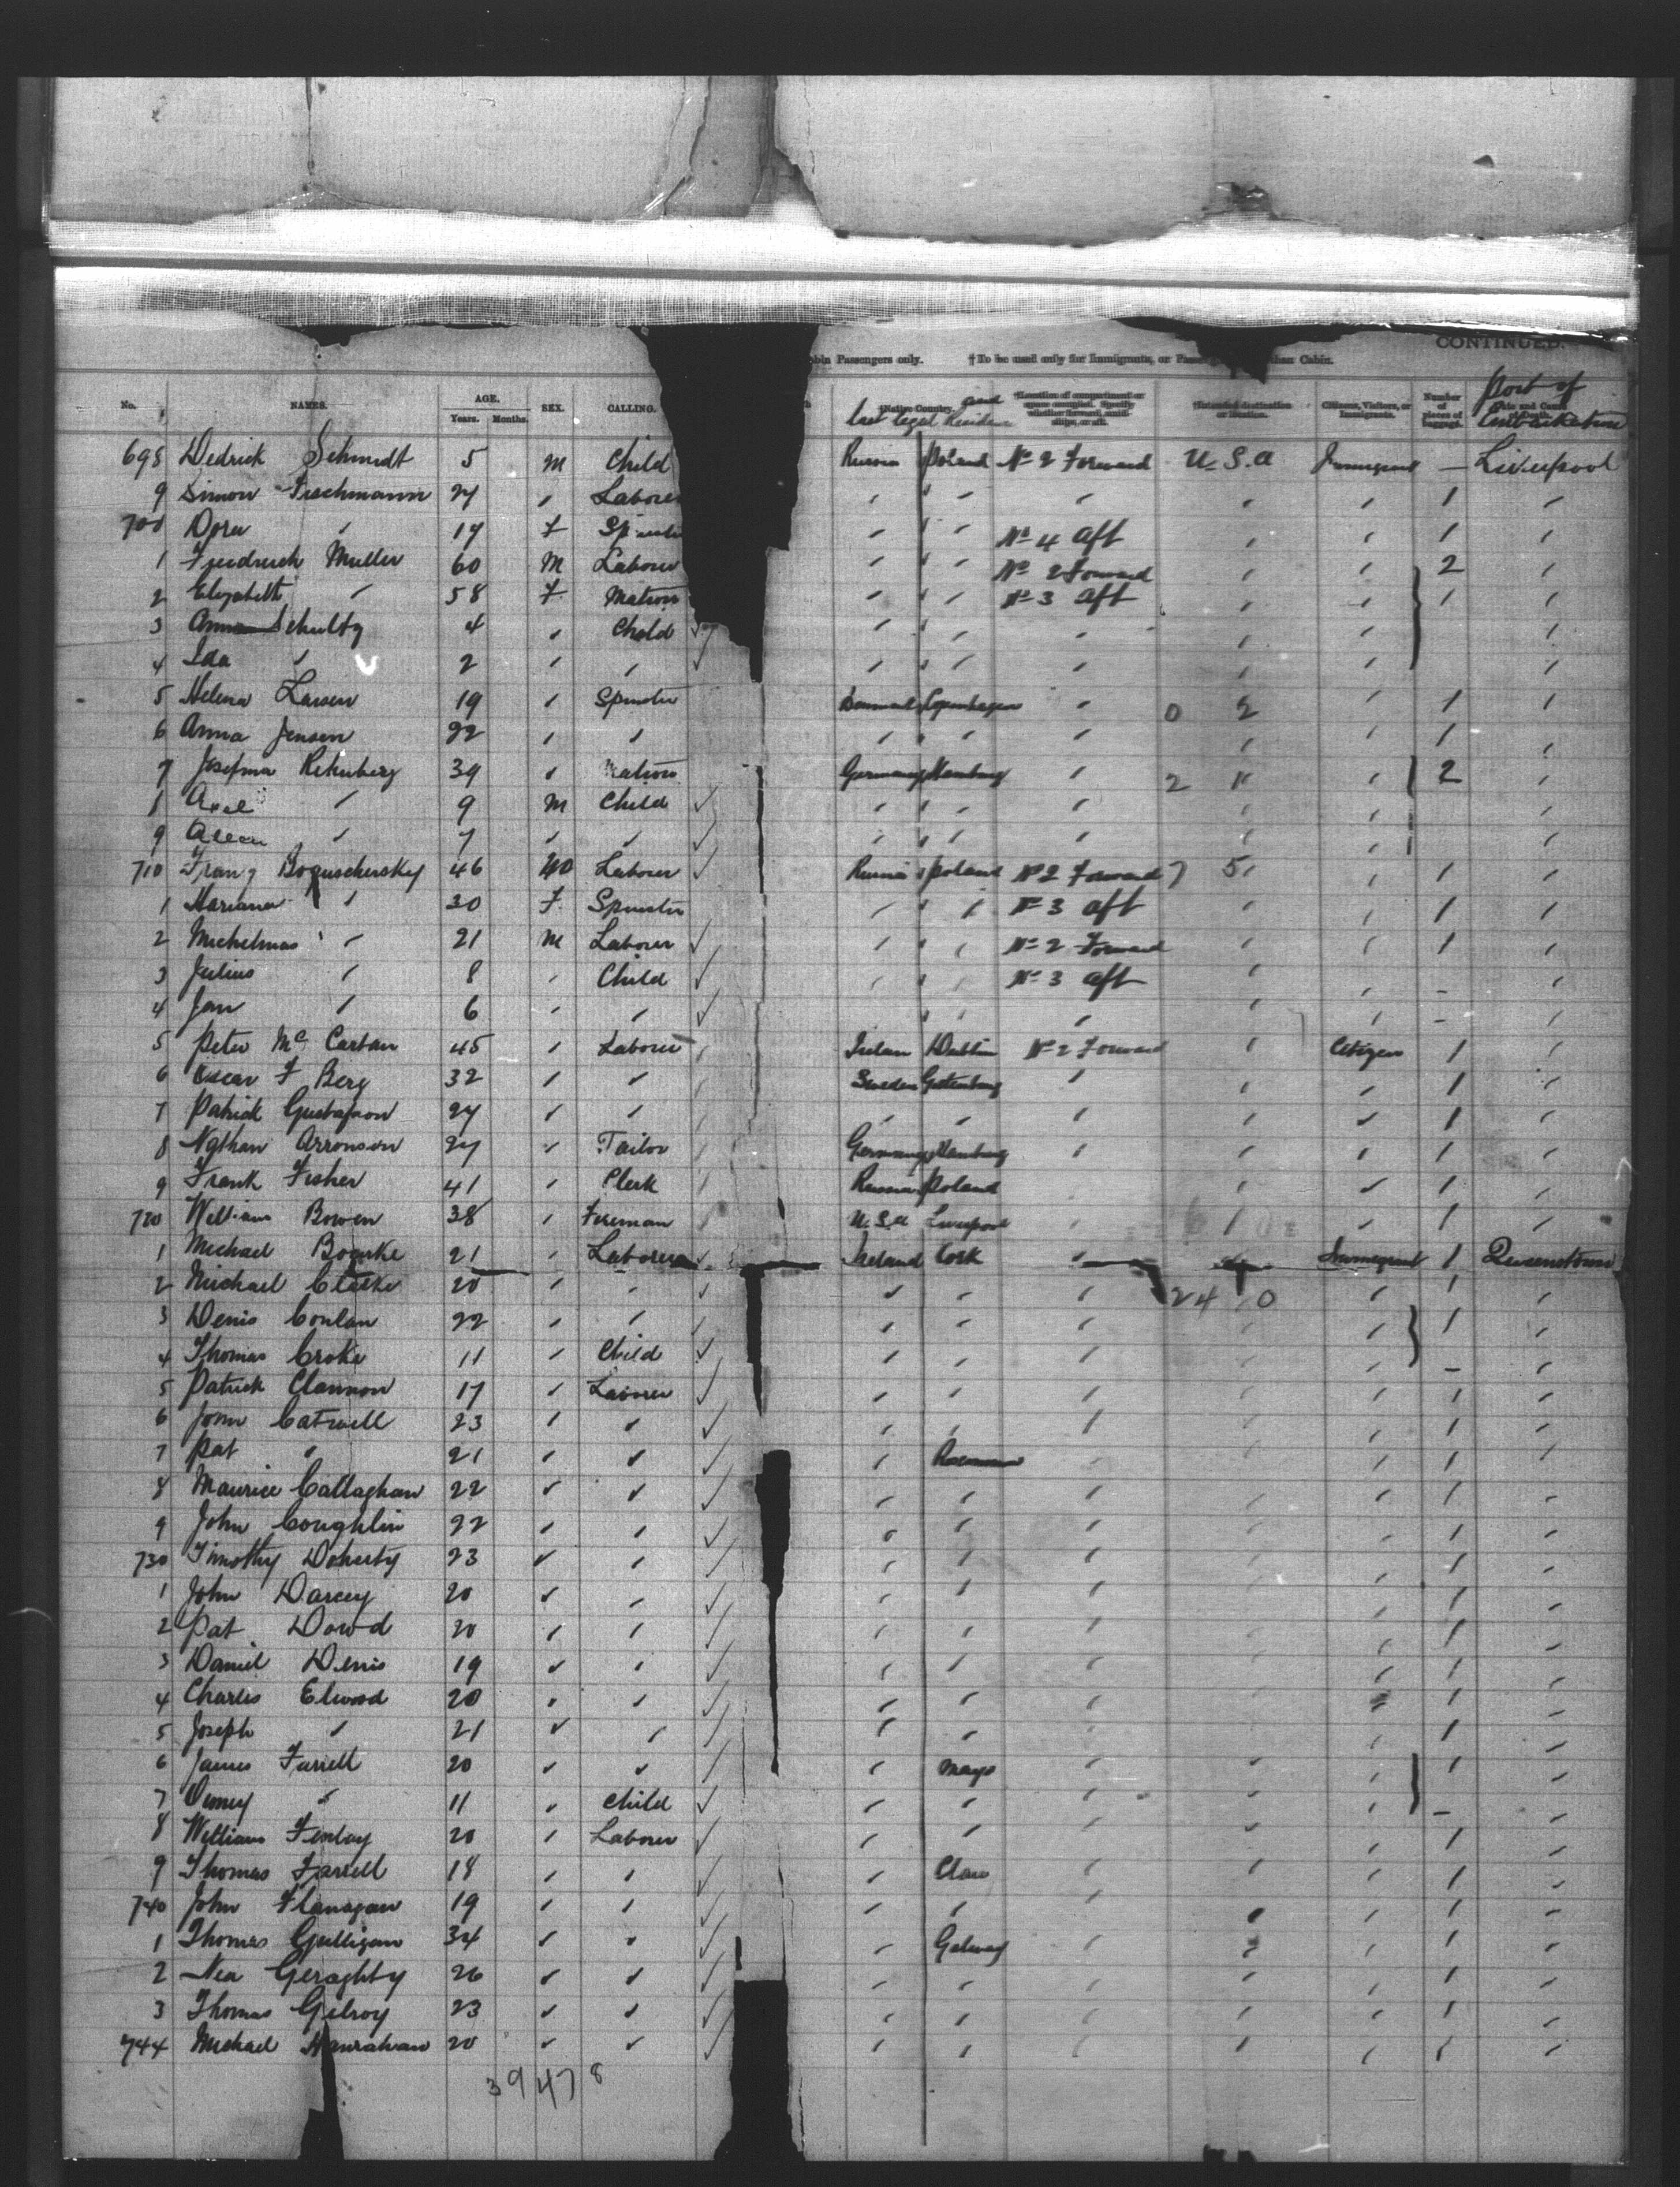 CONTINUED.
Cabin Passengers only. †To be used only for Immigrants, or than Cabin.
No. NAMES. AGE. Years. Months. SEX. CALLING. Native Country, and last legal Residence Location of compartment or space occupied. Specify whether forward, amidships, or aft. Intended destination or location. Citizens, Visitors, or Immigrants. Number of pieces of baggage. Date and Cause of Death. Port of Embarkation
698 Dedrick Schmidt 5 M Child Russia Poland No 2 Forward U.S.a Immigrant — Liverpool
9 Simon Fischmann 27 " Laborer " " " " " " 1 "
700 Dora " 17 F " " " No 4 aft " " 1 "
1 Friedrich Muller 60 M Laborer " " " No 2 Forward " " 2 "
2 Elizabeth " 58 F Matron " " " No 3 aft " " 1 "
3 Schultz 4 " Child " " " " " " "
4 Ida " 2 " " " " " " " " "
5 Helena Larsen 19 " Spinster Denmark Copenhagen " 0 2 " 1 "
6 Anna Jensen 22 " " " " " " " " 1 "
7 Josefina 39 " Matron Germany Hamburg " 2 11 " 2 "
8 Axel " 9 M Child " " " " " " "
9 " 7 " " " " " " " " "
710 Franz Boguschersky 46 Laborer Russia Poland No 2 Forward 7 5 " 1 "
1 Mariana " 30 F Spinster " " " No 3 aft " " 1 "
2 Michelmas " 21 M Laborer " " " No 2 Forward " " 1 "
3 Julius " 8 " Child " " " No 3 aft " " - "
4 Jan " 6 " " " " " " " " - "
5 Peter Mc Cartan 45 " Laborer Dublin No 2 Forward " Citizen 1 "
6 Oscar F Berg 32 " " Sweden Gotenburg " " " 1 "
7 Patrick Gustafson 27 " " " " " " " 1 "
8 Nathan Arronson 27 " Tailor Germany Hamburg " " 1 "
9 Frank Fisher 41 " Clerk Russia Poland " " 1 "
720 William Bowen 38 " Fireman U.S.a Liverpool " " 1 "
1 Michael Bourke 21 " Laborer Ireland Cork " Immigrant 1 Queenstown
2 Michael Clarke 20 " " " " " 24 0 " 1 "
3 Denis Conlan 22 " " " " " " " 1 "
4 Thomas Croke 11 " Child " " " " " - "
5 Patrick Clannon 17 " Laborer " " " " " 1 "
6 John Catwell 23 " " " " " " " 1 "
7 Pat " 21 " " " " " " 1 "
8 Maurice Callaghan 22 " " " " " " " 1 "
9 John Coughlin 22 " " " " " " " 1 "
730 Timothy Doherty 23 " " " " " " " 1 "
1 John Darcey 20 " " " " " " " 1 "
2 Pat Dowd 20 " " " " " " " 1 "
3 Daniel Denis 19 " " " " " " " 1 "
4 Charles Elwood 20 " " " " " " " 1 "
5 Joseph " 21 " " " " " " " 1 "
6 James Farrell 20 " " " Mayo " " " 1 "
7 " 11 " Child " " " " " - "
8 William Finlay 20 " Laborer " " " " " 1 "
9 Thomas Farrell 18 " " " Clare " " " 1 "
740 John Flanagan 19 " " " " " " " 1 "
1 Thomas Gulligan 34 " " " Galway " " " 1 "
2 Geraghty 26 " " " " " " " 1 "
3 Thomas Gilroy 23 " " " " " " " 1 "
744 Michael Hanrahan 20 " " " " " " " 1 "
39 47 8